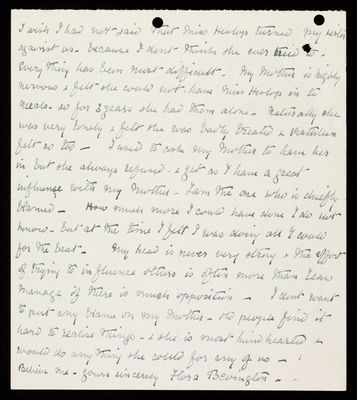 I wish I had not said that Miss Heslop turned my sister
against us. because I dont think she ever tried to -
Every thing has been most difficult - My Mother is highly
nervous & felt she could not have Miss Heslop in to
meals. so for 3 years she had them alone. Naturally she
was very lonely & felt she was badly treated &
felt so too - I used to ask my Mother to have her
in but she always refused. & yet as I have a great
influence with my Mother. I am the one who is chiefly
blamed - How much more I could have done I do not
know. but at the time I felt I was doing all I could
for the best - My head is never very strong & the effort
of trying to influence others is often more than I can
manage if there is much opposition - I dont want
to put any blame on my Mother. old people find it
hard to realise things. & she is most kind hearted &
would do any thing she could for any of us -
Believe me. yours sincerely Flora Bevington -